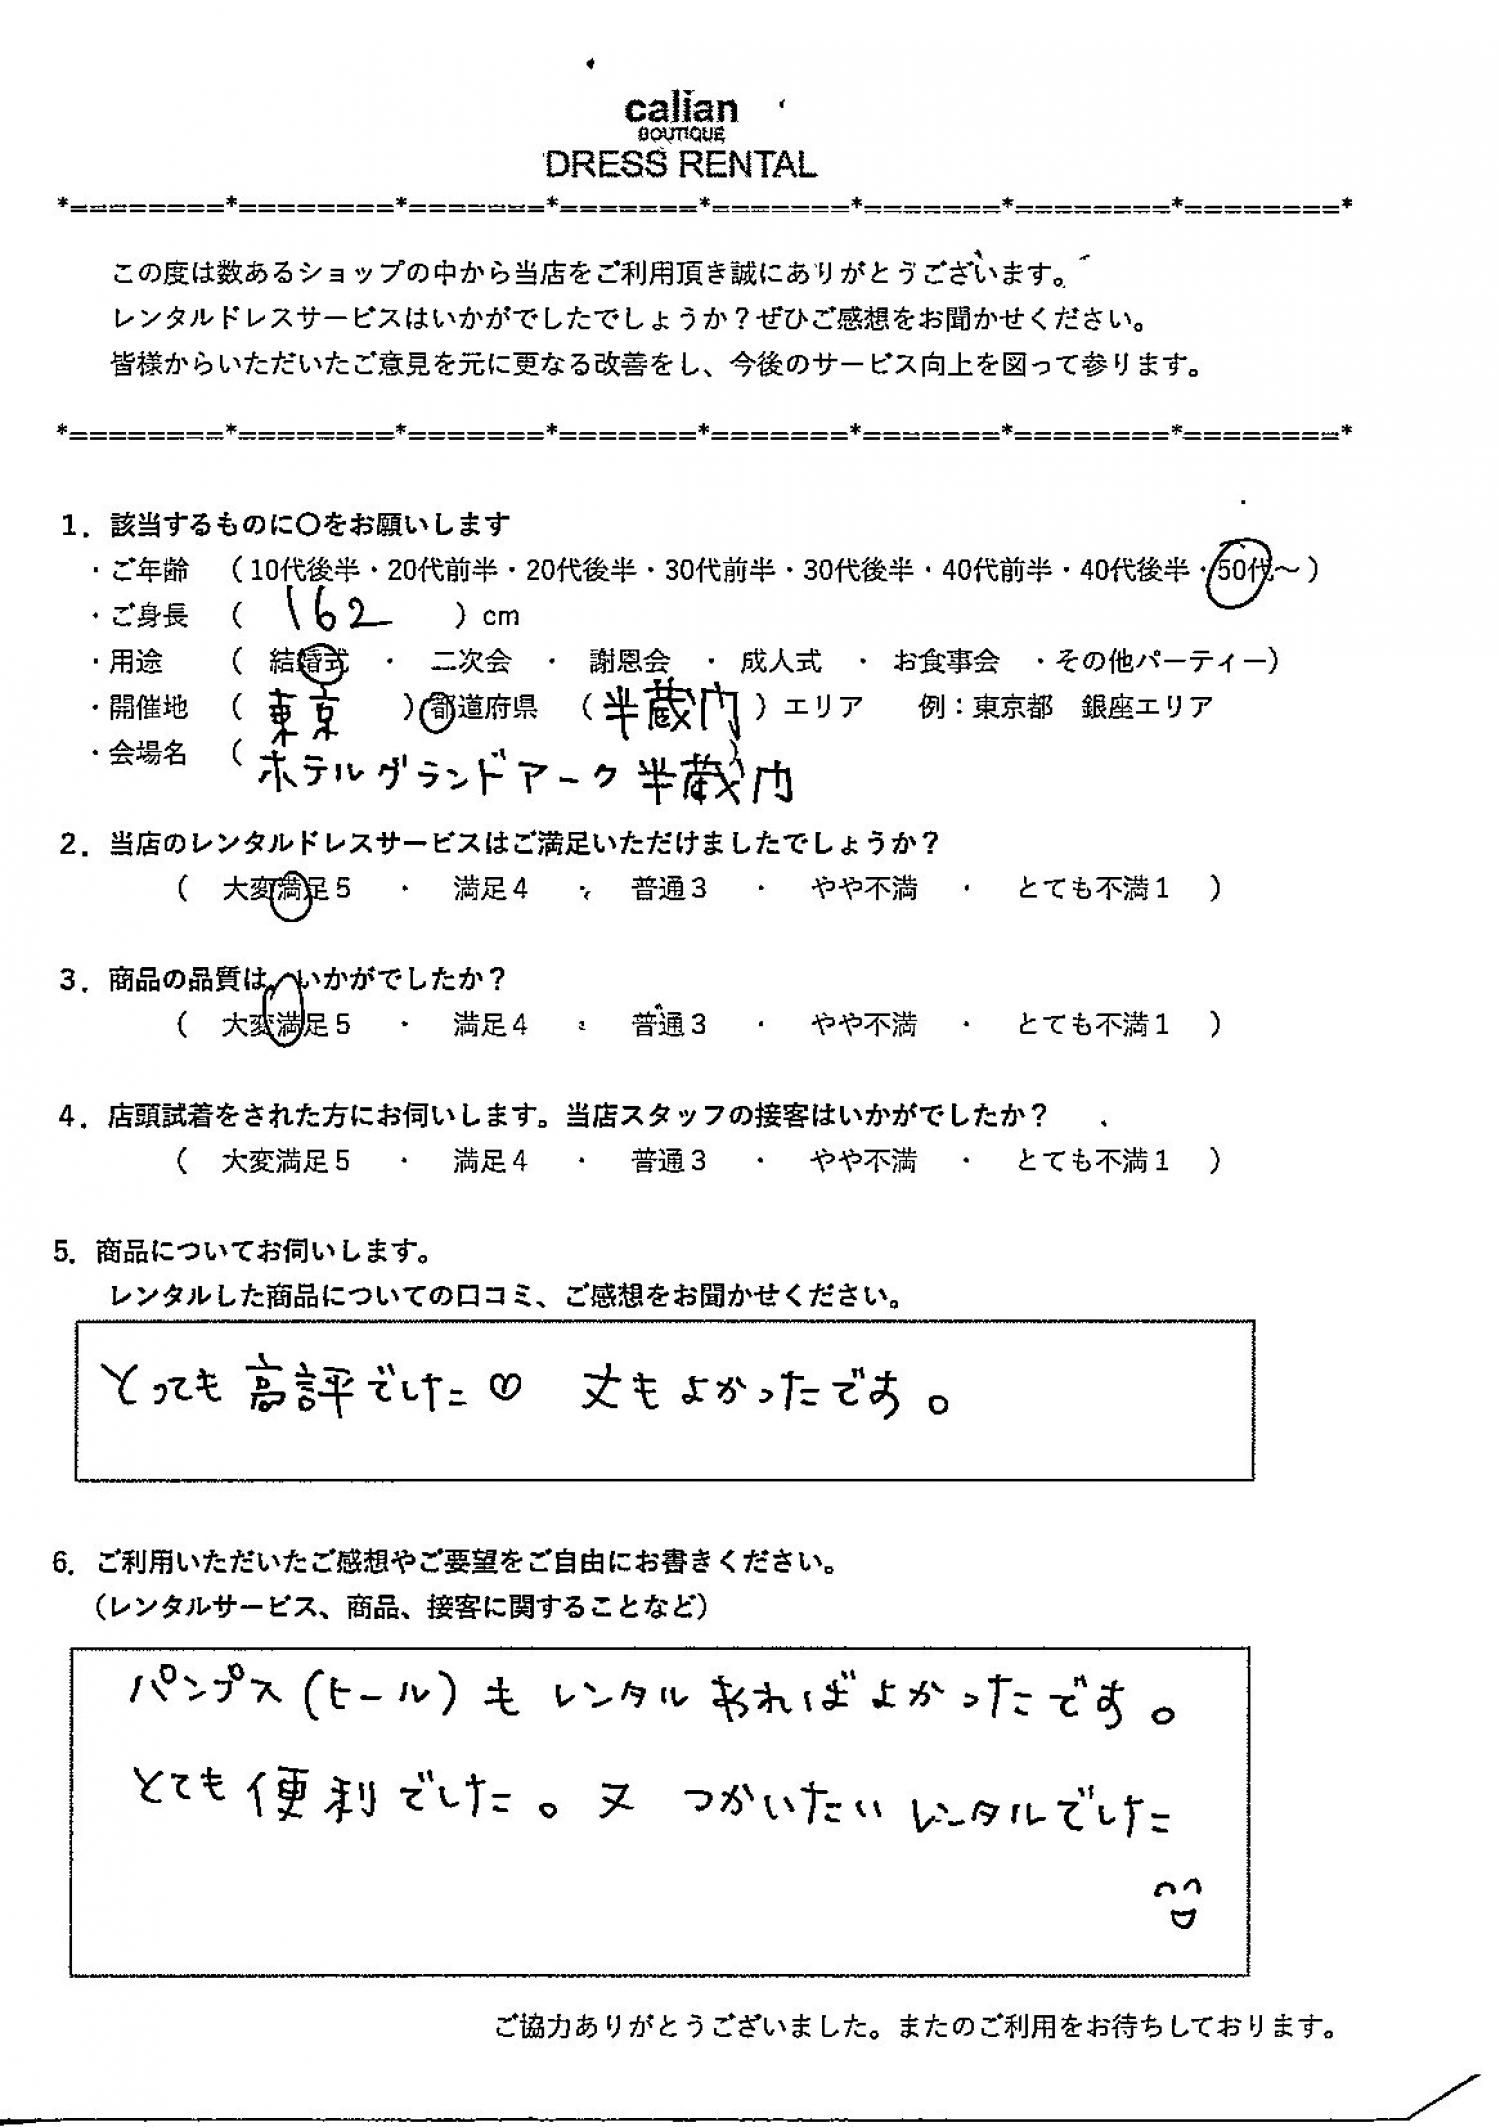 calian
BOUTIQUE
DRESS RENTAL
*========*========*=======*=======*=======*=======*========*========*
この度は数あるショップの中から当店をご利用頂き誠にありがとうございます。
レンタルドレスサービスはいかがでしたでしょうか？ぜひご感想をお聞かせください。
皆様からいただいたご意見を元に更なる改善をし、今後のサービス向上を図って参ります。
*========*========*=======*=======*=======*=======*========*========*
1．該当するものに〇をお願いします
・ご年齢　（10代後半・20代前半・20代後半・30代前半・30代後半・40代前半・40代後半・50代〜）
・ご身長　（　162　）cm
・用途　（　結婚式　・　二次会　・　謝恩会　・　成人式　・　お食事会　・その他パーティー）
・開催地　（　東京　）都道府県　（半蔵門）エリア　例：東京都　銀座エリア
・会場名　（ホテルグランドアーク半蔵門）
2．当店のレンタルドレスサービスはご満足いただけましたでしょうか？
（　大変満足5　・　満足4　・　普通3　・　やや不満　・　とても不満1　）
3．商品の品質は、いかがでしたか？
（　大変満足5　・　満足4　・　普通3　・　やや不満　・　とても不満1　）
4．店頭試着をされた方にお伺いします。当店スタッフの接客はいかがでしたか？
（　大変満足5　・　満足4　・　普通3　・　やや不満　・　とても不満1　）
5．商品についてお伺いします。
レンタルした商品についての口コミ、ご感想をお聞かせください。
とっても高評でした♡　丈もよかったです。
6．ご利用いただいたご感想やご要望をご自由にお書きください。
（レンタルサービス、商品、接客に関することなど）
パンプス(ヒール)も レンタルあればよかったです。
とても便利でした。又 つかいたい レンタルでした
ご協力ありがとうございました。またのご利用をお待ちしております。